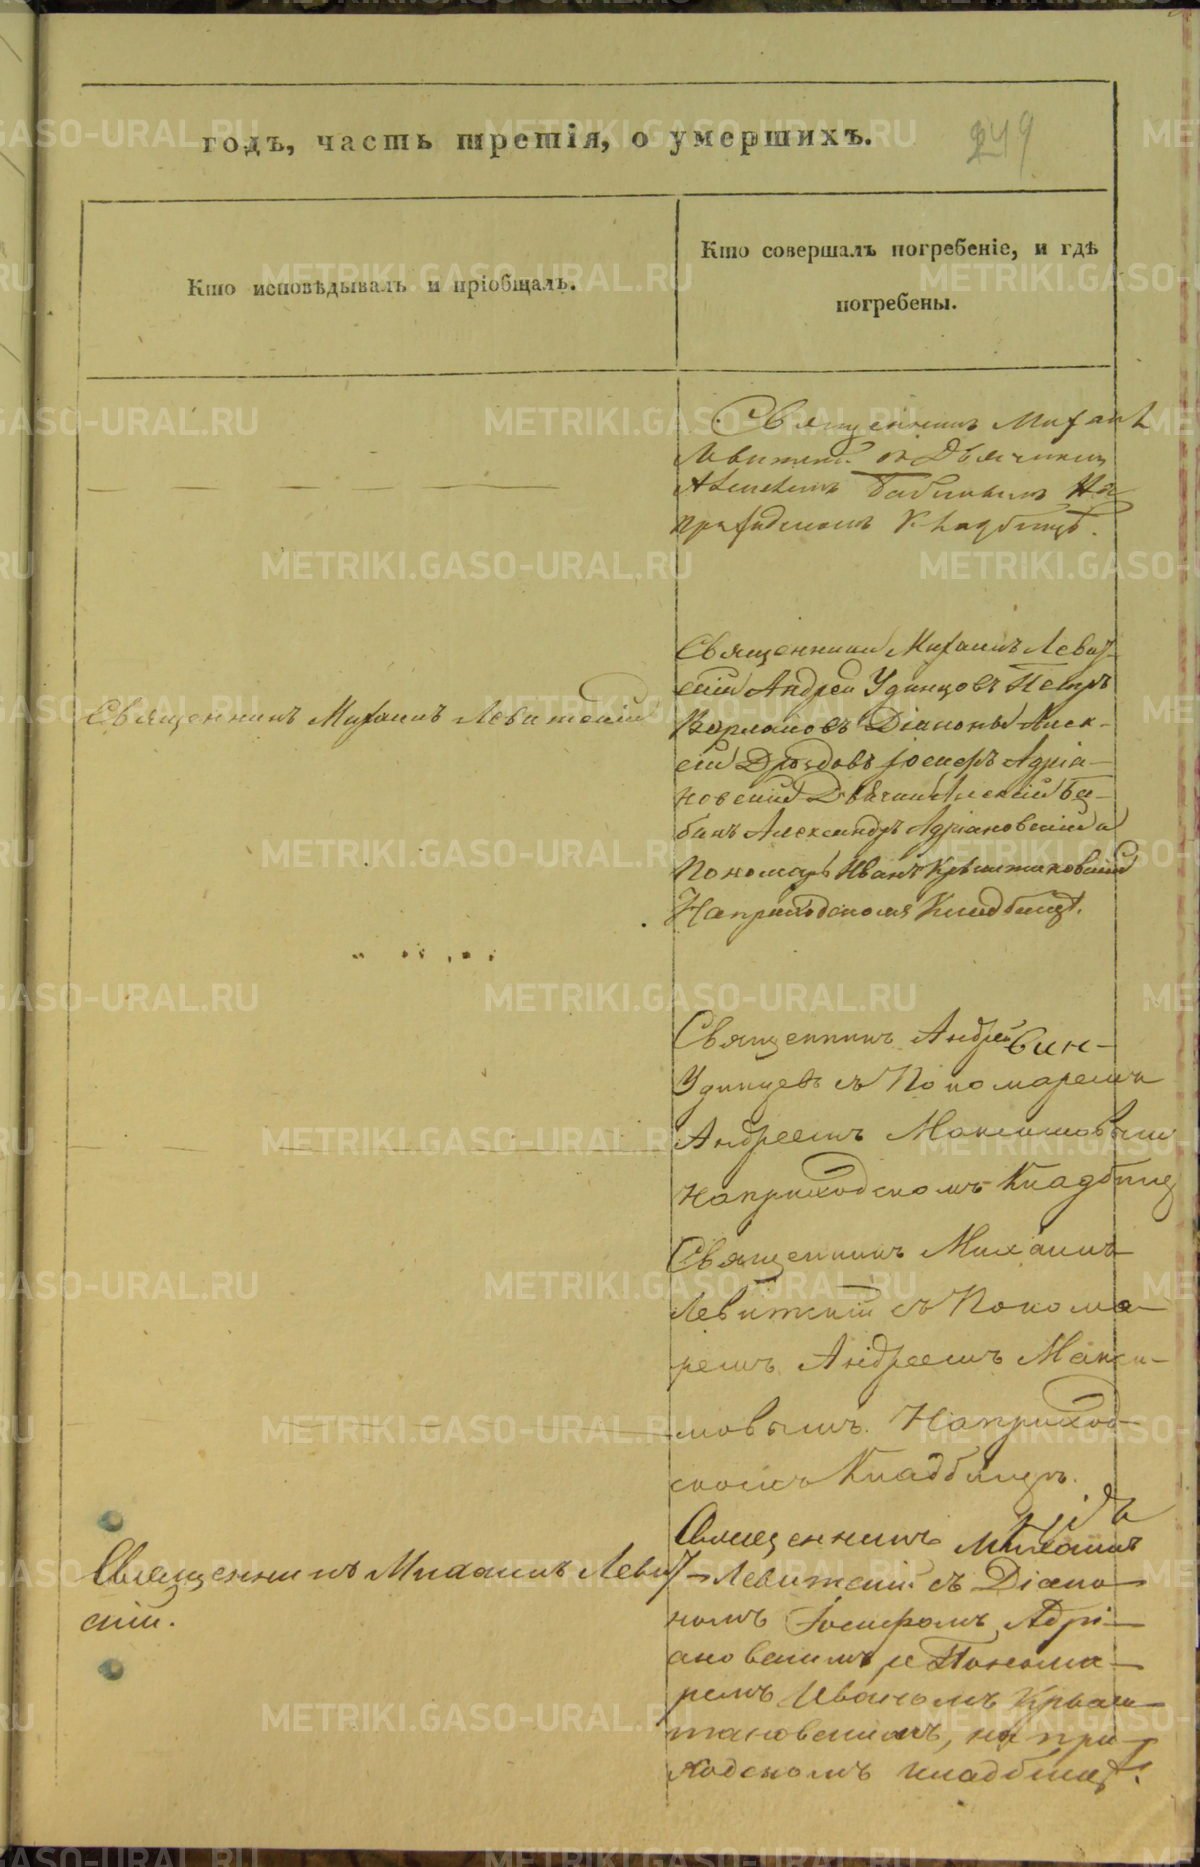 годъ, часть третія, о умершихъ.
249
Кто исповѣдывалъ и пріобщалъ.
Кто совершалъ погребеніе, и гдѣ
погребены.
Священникъ Михаил
Левитскій съ Дьячкомъ
Алексѣемъ Бабинымъ На
приходскомъ Кладбищѣ.
Священникъ Михаилъ Левитскій
Священники Михаилъ Левит-
скій Андрей Удинцовъ Петръ
Варлаковъ Діаконы Алек-
сій Дроздовъ Іосифъ Адріа-
новскій Дьячки Алексій Ба-
бинъ Александръ Адріановскій и
Пономарь Иванъ Крыштановскій
На приходскомъ Кладбищѣ.
Священникъ Андрей Син-
Удинцевъ съ Пономаремъ
Андреемъ Максимовымъ
На приходскомъ Кладбищѣ
Священникъ Михаилъ
Левитскій съ Понома-
ремъ Андреемъ Макси-
мовымъ. На приход-
скомъ Кладбищѣ.
Священникъ Михаилъ Левит-
скій.
Священникъ Михаилъ
Левитскій съ Діако-
номъ Іосифомъ Адрі-
ановскимъ и Понома-
ремъ Иваномъ Крыш-
тановскимъ, на при-
ходскомъ кладбищѣ.
METRIKI.GASO-URAL.RU